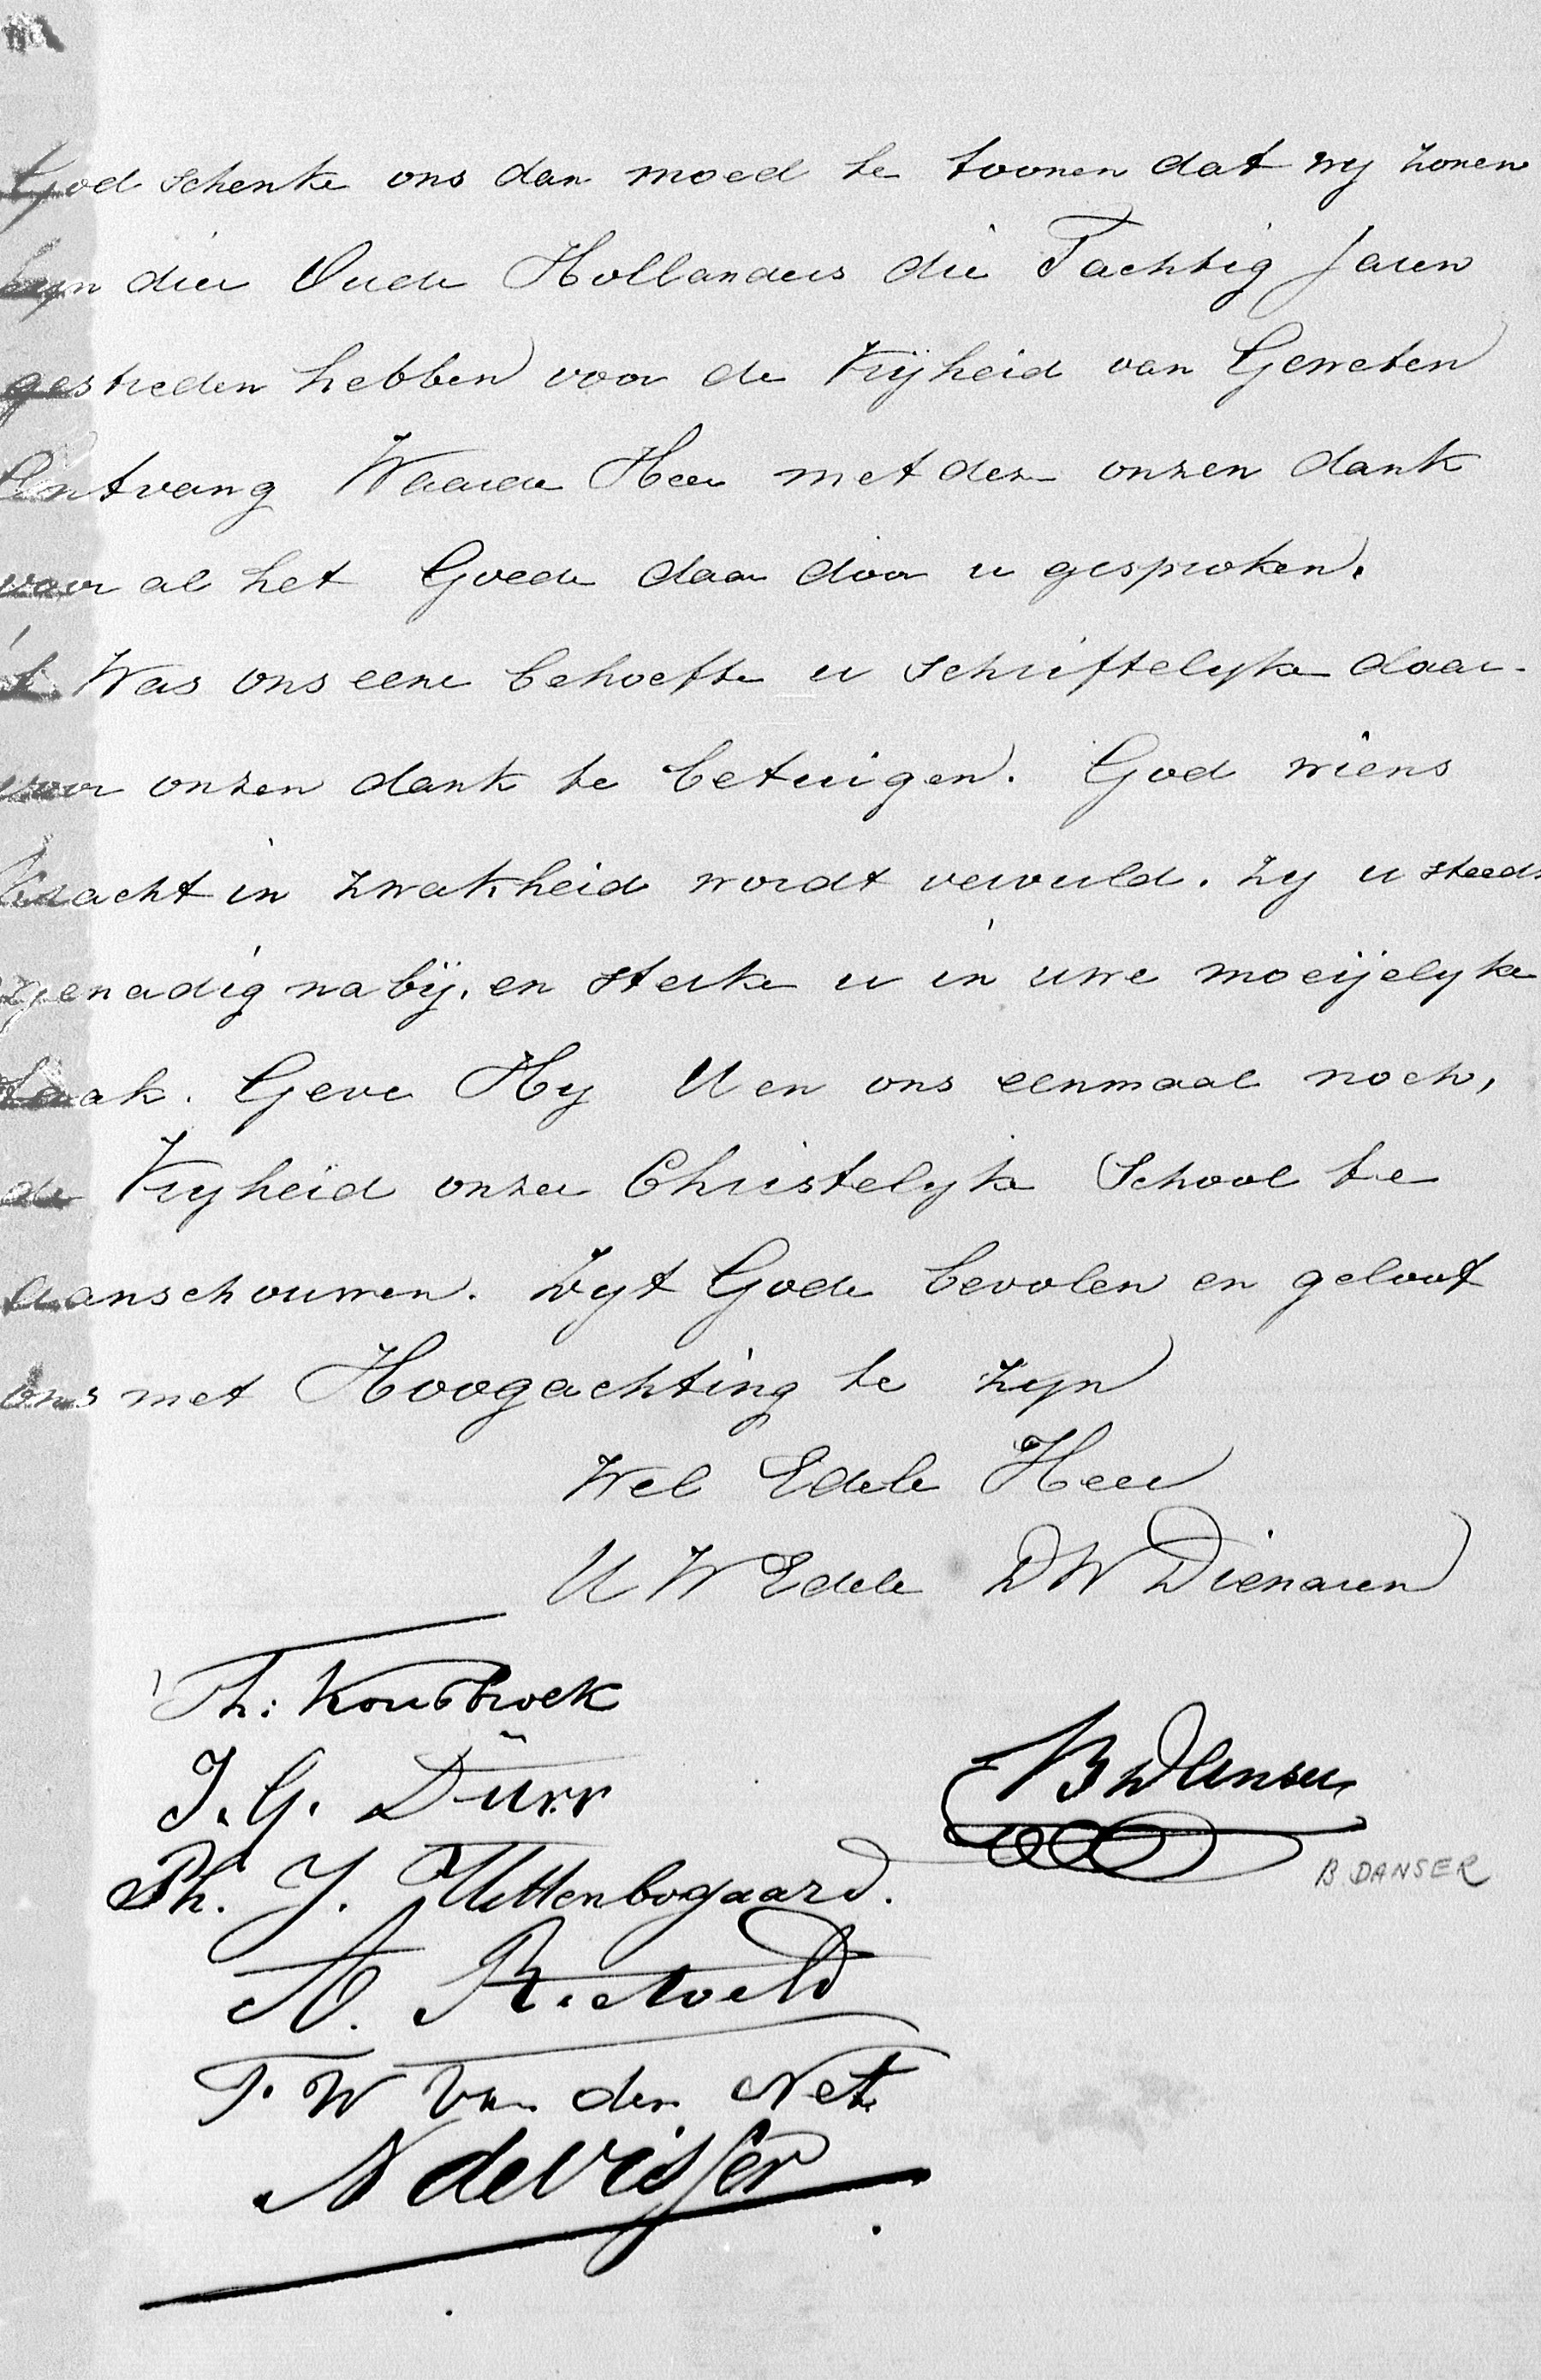 God schenke ons dan moed te toonen dat wy zonen
zyn dier Oude Hollanders die Tachtig Jaren
gestreden hebben voor de Vrijheid van Geweten
Ontvang Waarde Heer met deze onzen dank
voor al het Goede daar door u gesproken.
't Was ons eene behoefte u schriftelyke daar-
voor onzen dank te betuigen. God wiens
Kracht in zwakheid wordt vervuld. zy u steeds
genadig nabij. en sterke u in uwe moeijelyke
taak. Geve Hy U en ons eenmaal noch,
de Vryheid onzer Christelyke School te
aanschouwen. Zyt Gode bevolen en geloof
ons met Hoogachting te zyn
Wel Edele Heer
U W Edele DW Dienaren
Th: Kousbroek
J. G. Dürr
B Danser
B DANSER
Ph. J. Uittenbogaard.
A. Rietveld
T. W van der Net.
N de Visser